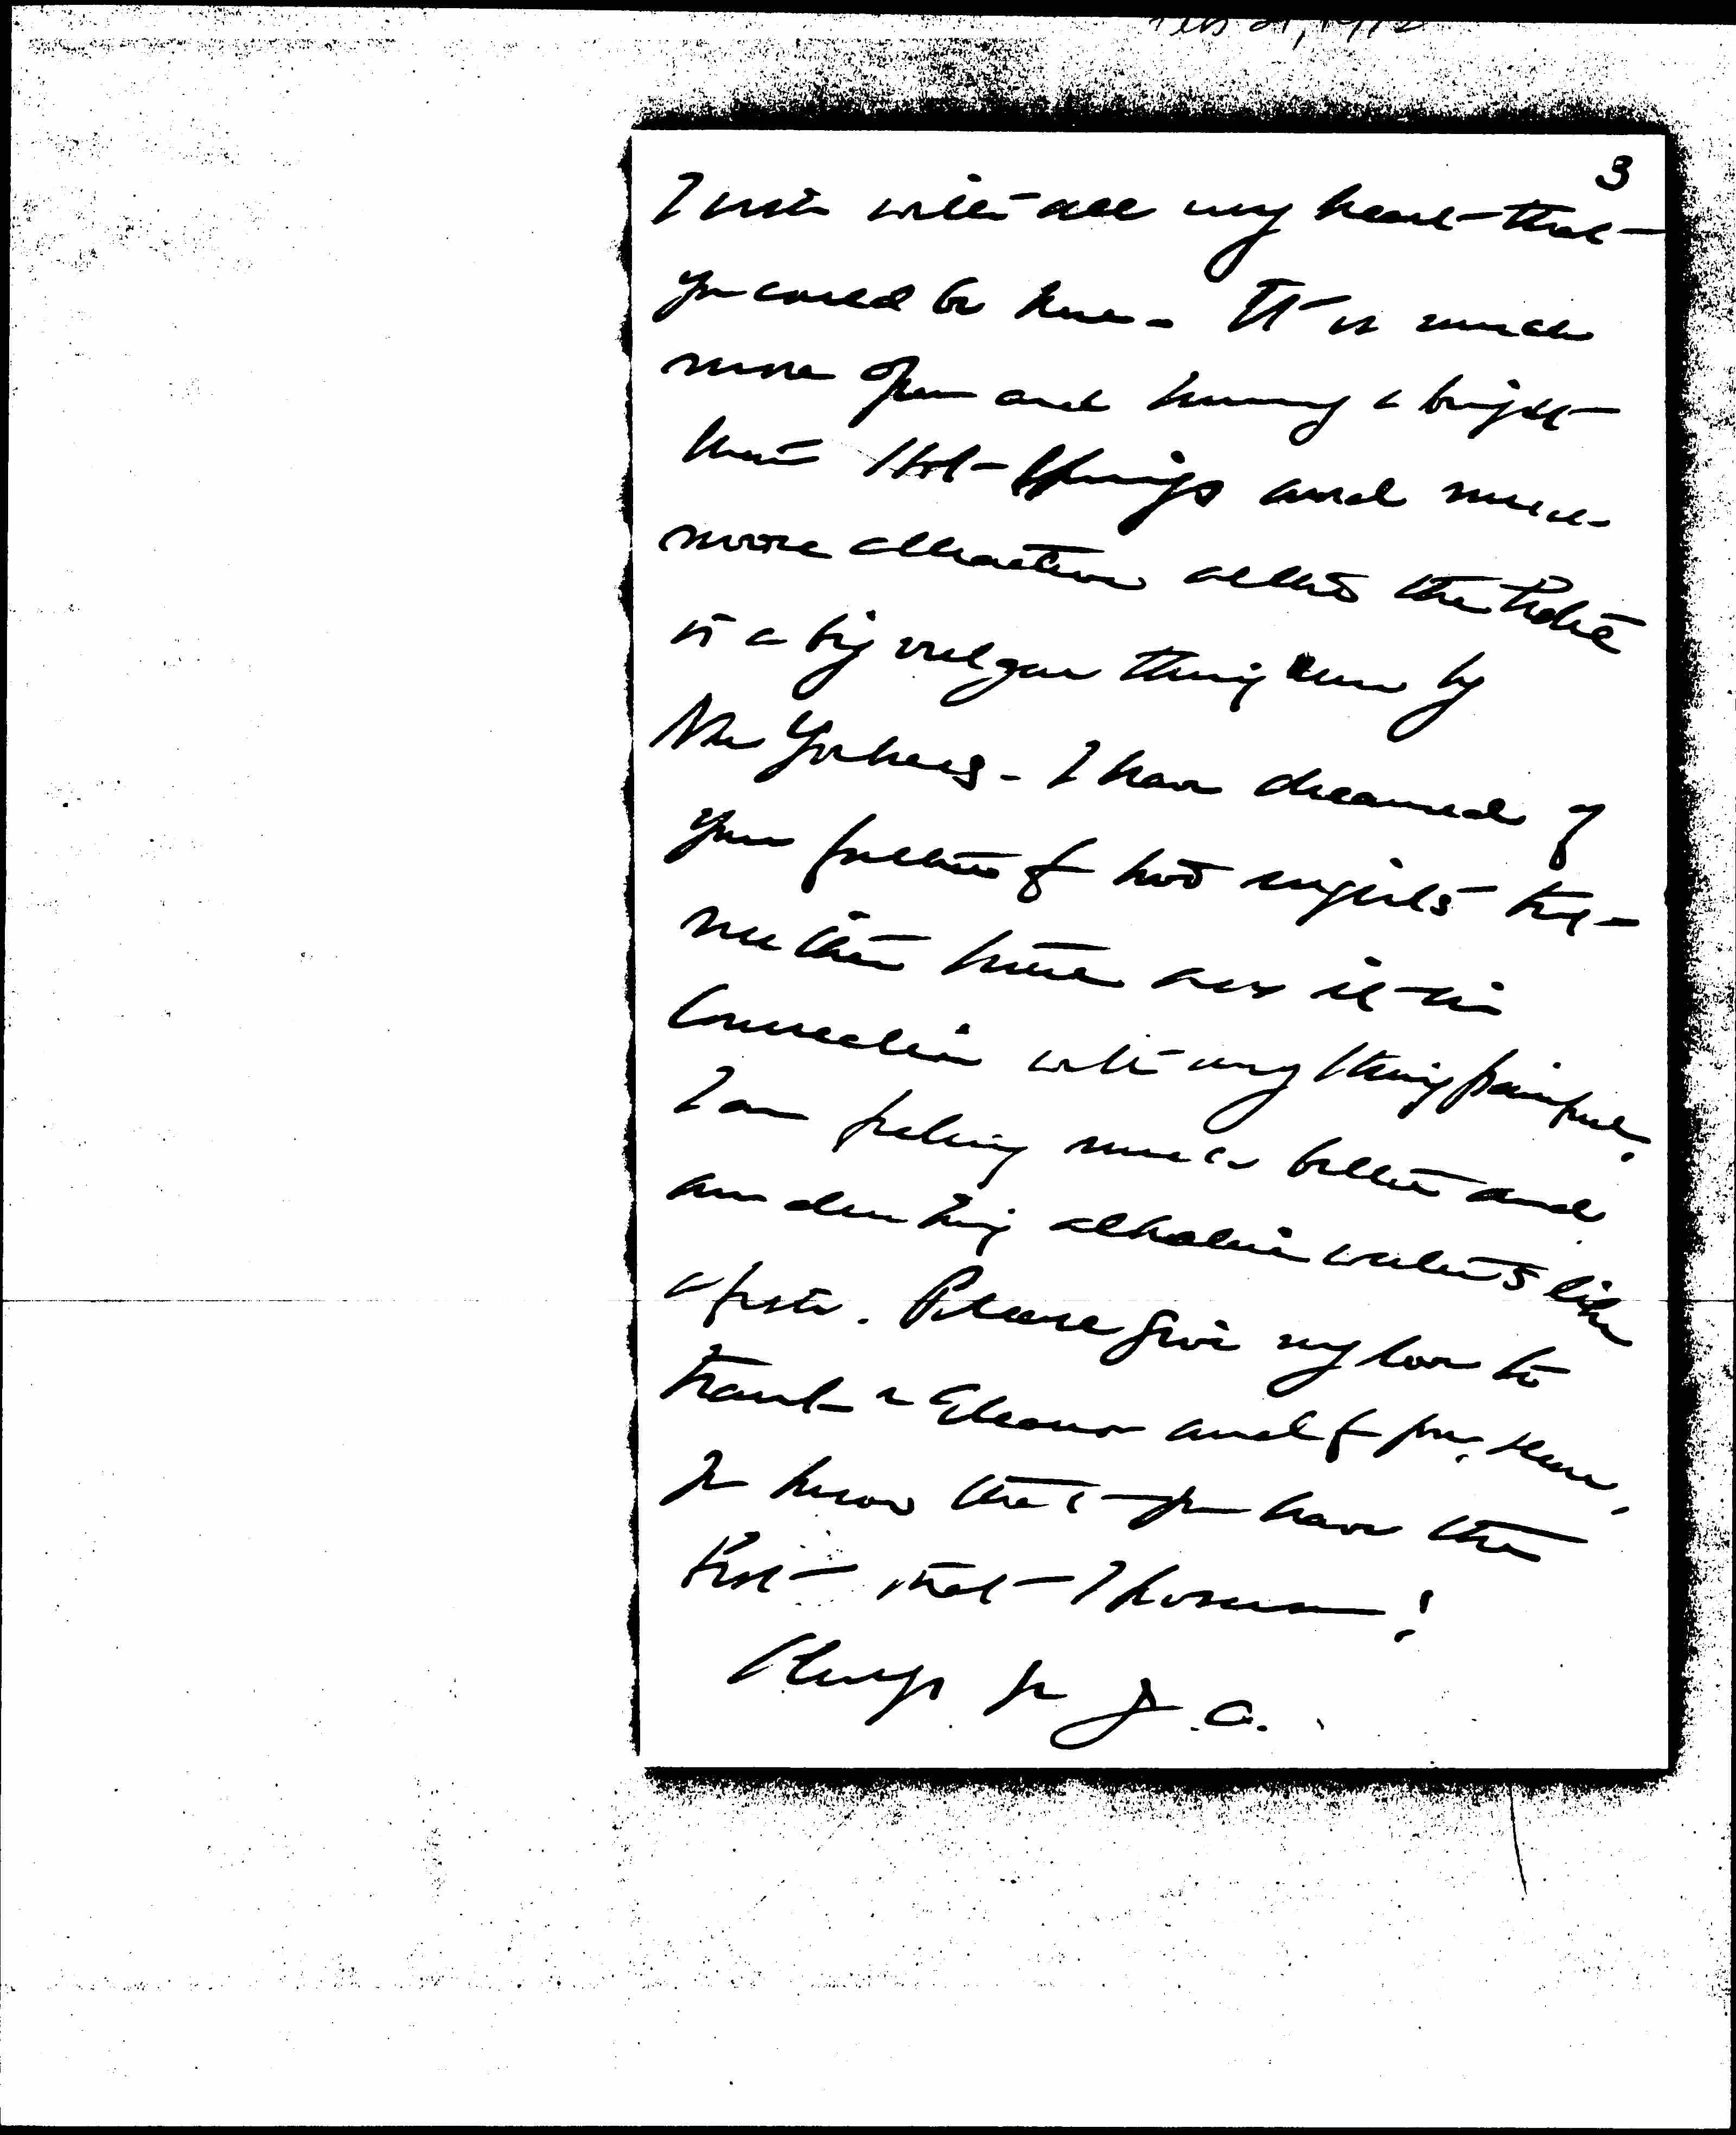 Feb 21, 1912
3
I wish with all my heart that
you could be here. It is much
more open and sunny & bright
than Hot Springs and much
more attractive altho the Hotel
is a big vulgar thing run by
New Yorkers. I have dreamed of
your father for two nights but
neither time was it in
connection with anything painful.
I am feeling much better and
am drinking alkaline waters like
a fish. Please give my love to
Frank & Eleanor and for you, dear,
you know that you have the
best that I possess!
Always yr J. C.